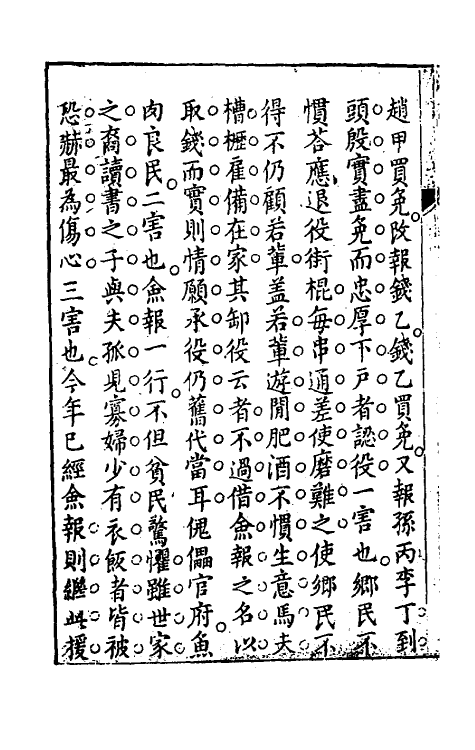 趙甲買免改報錢乙錢乙買免又報孫丙李丁到
頭殷實盡免而忠厚下戶者認役一害也鄉民不
慣荅應退役衙棍每串通差使磨難之使鄉民不
得不仍顧若軰蓋若軰遊閒肥酒不慣生意馬夫
槽櫪雇備在家其卸役云者不過借僉報之名以
取錢而實則情願承役仍舊代當耳傀儡官府魚
肉良民二害也僉報一行不但貧民驚懼雖世家
之裔讀書之子與夫孤兒寡婦少有衣飯者皆被
恐赫最為傷心三害也今年已經僉報則繼此援